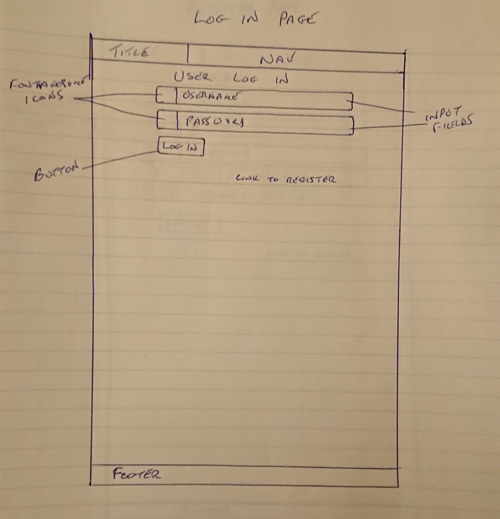 LOG IN PAGE
TITLE NAV
USER LOG IN
FONTAWESOME
ICONS
USERNAME
INPUT
FIELDS
PASSWORD
LOG IN
BUTTON
LINK TO REGISTER
FOOTER